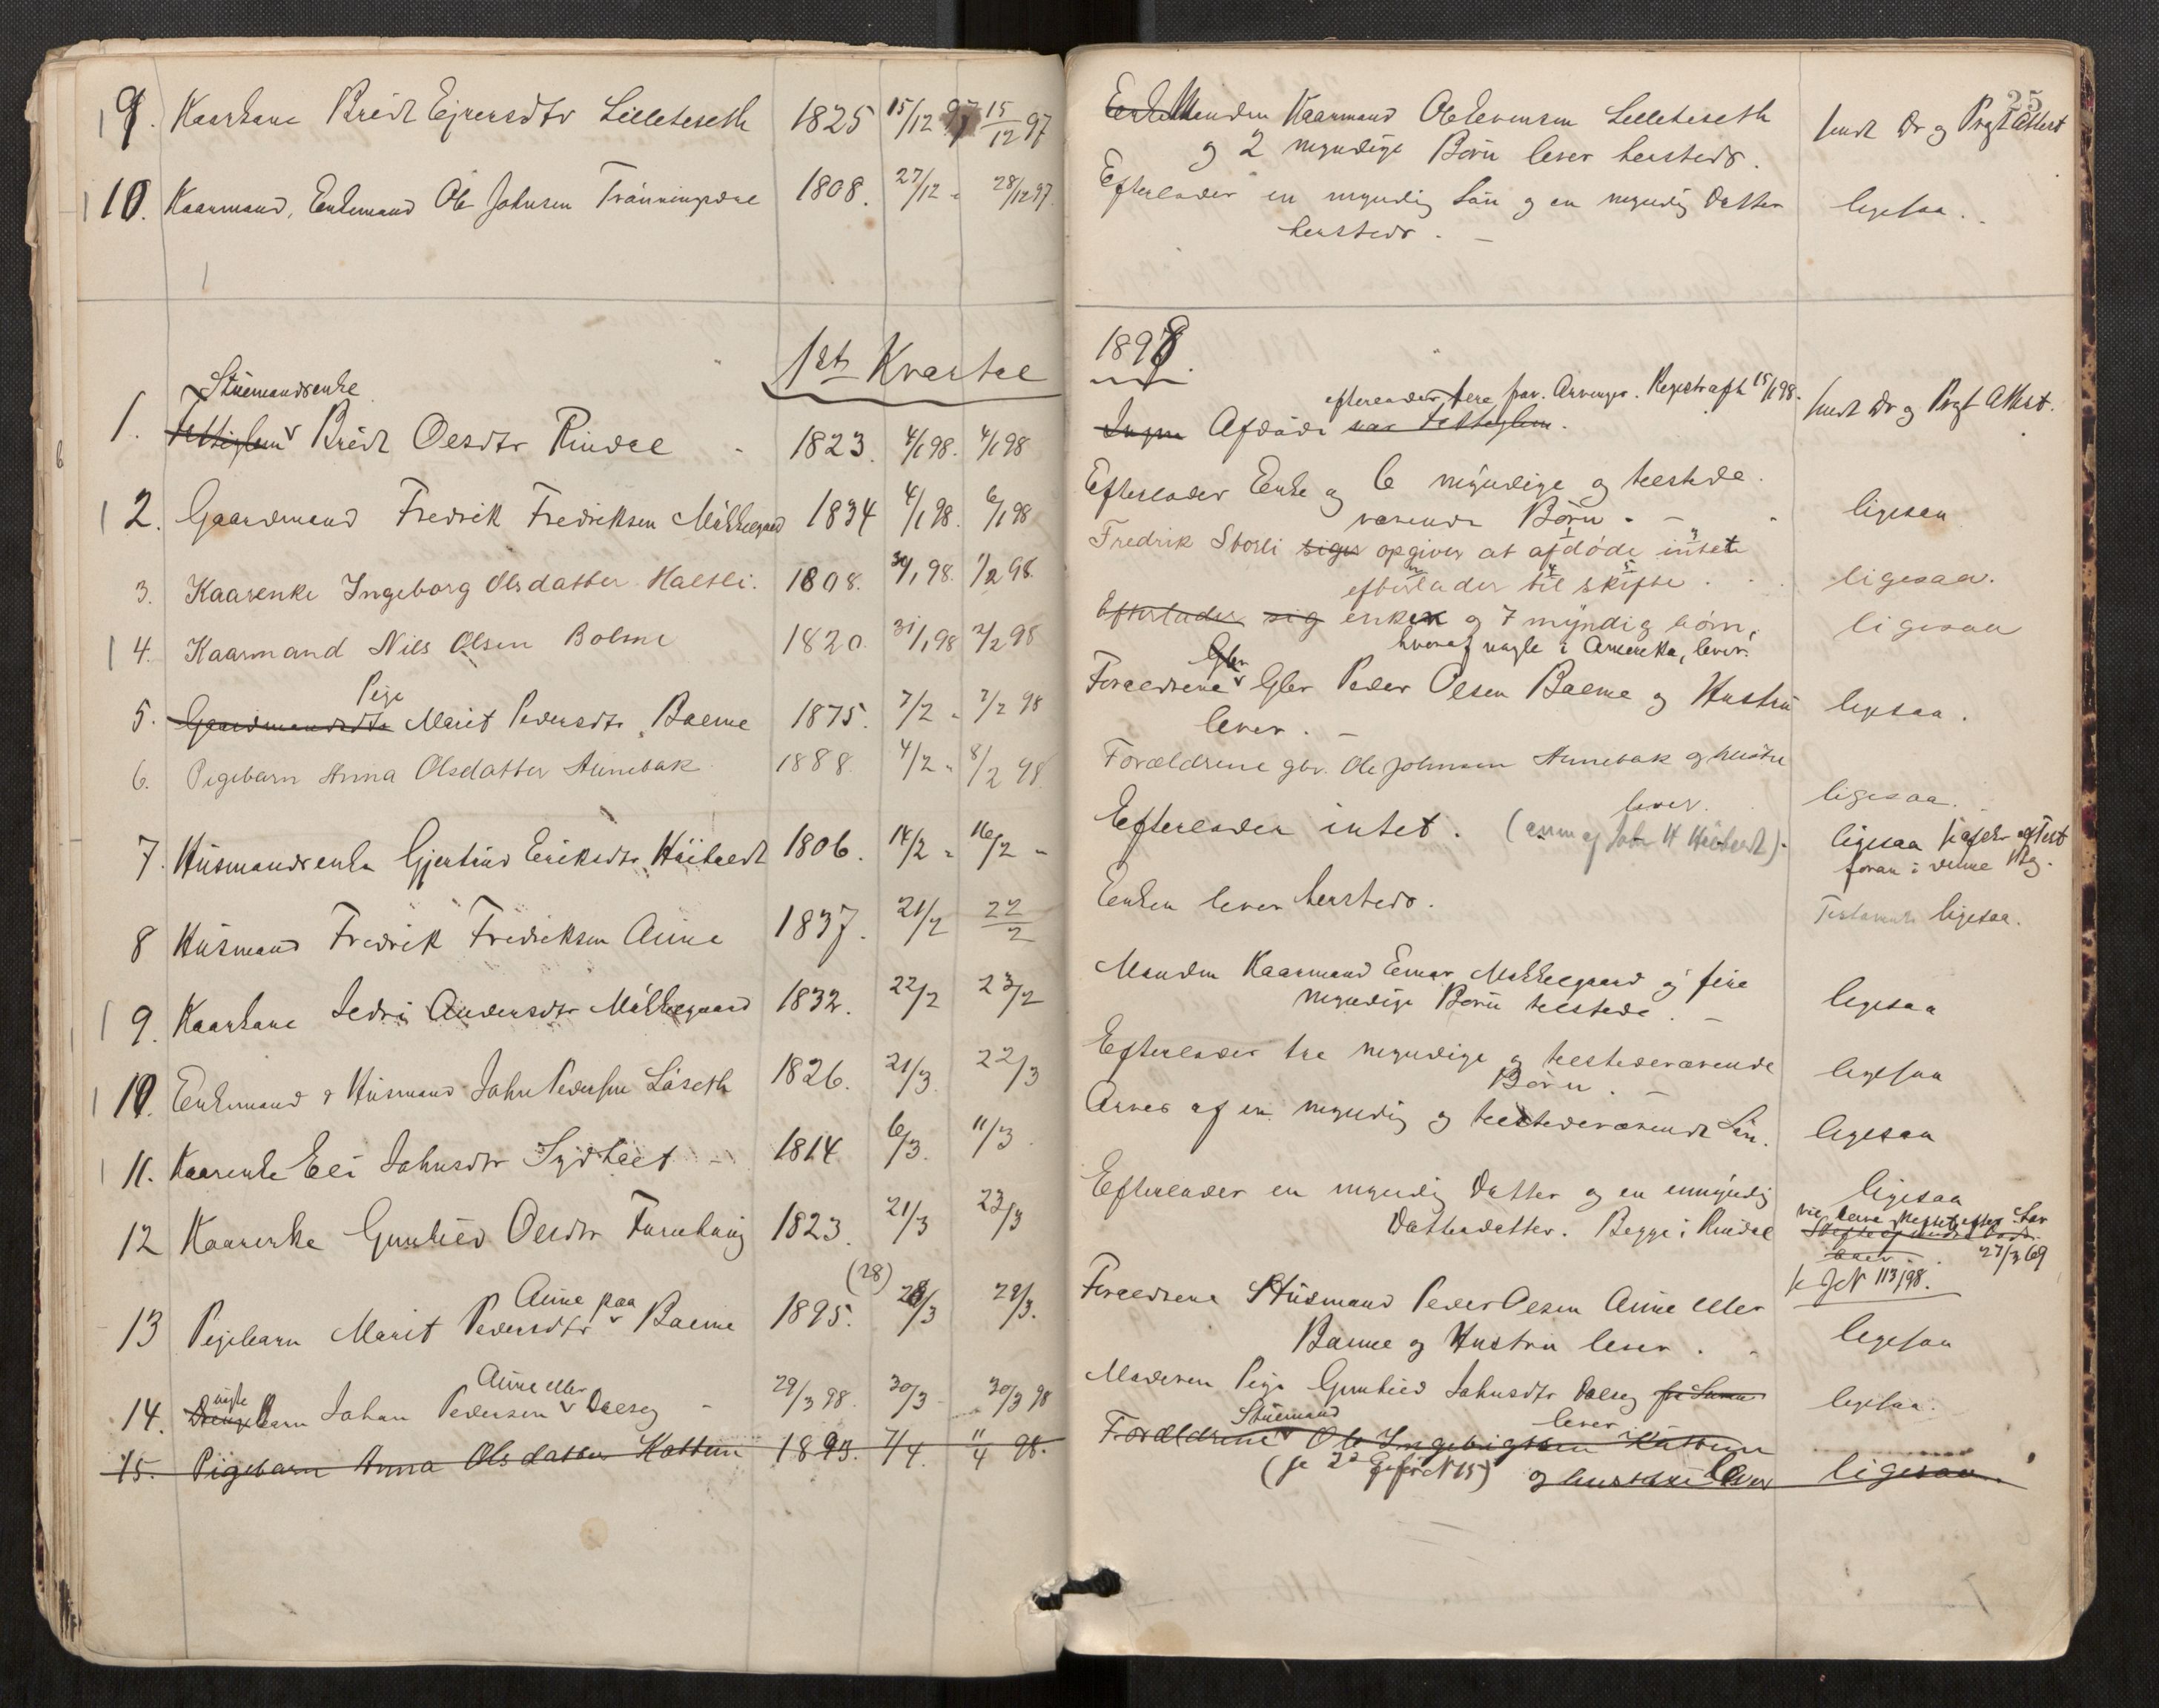 25
9. Kaarkone Brit Ejvensdtr Lilleteseth 1825 15/12 97 15/12 97
Enke Manden Kaarmand Ole Evensen Lilleteseth
og 2 myndige Børn lever hersteds.
sendt Dr og Prgt Attest
10. Kaarmand, Enkemand Ole Johnsen Trønningsdal 1808. 27/12 " 28/12 97.
Efterlader en myndig Søn og en myndig Datter
hersteds. -
ligesaa.
1st Kvartal
1898.
Stuemandsenke
1. Fattiglem Brit Olsdtr Rindal 1823. 4/1 98. 4/1 98
efterlader flere frav. Arvinger. Registraft 15/1 98.
Ingen Afdøde var Fattiglem.
sendt Dr og Prgt Attest.
2. Gaardmand Fredrik Fredriksen Møkkelgaard 1834 4/1 98. 6/1 98
Efterlader Enke og 6 myndige og tilstede
værende Børn. -
ligesaa
3. Kaarenke Ingeborg Olsdatter Haltli. 1808. 30/1 98. 1/2 98.
Fredrik Storli siger opgiver at afdøde intet
efterlader til skifte.
ligesaa.
4. Kaarmand Nils Olsen Bolme 1820. 31/1 98 2/2 98
Efterlader sig enke og 7 myndig børn,
hvoraf nogle i Amerika, lever.
ligesaa
Pige
5. Gaardmandsdtr Marit Pedersdtr Bolme 1875. 7/2 " 7/2 98
Gbr
Forældrene Gbr Peder Olsen Bolme og Hustru
lever. -
ligesaa.
6. Pigebarn Anna Olsdatter Aunebak 1888. 4/2 " 8/2 98.
Forældrene gbr. Ole Johnsen Aunebak og hustru
lever.
ligesaa.
7. Husmandsenke Gjertrud Eriksdtr 1806. 14/2 " 16/2 "
Efterlader intet.
ligesaa
foran i denne
8 Husmand Fredrik Fredriksen Aune 1837. 21/2 22/2
Enken lever hersteds.
Testament ligesaa.
9. Kaarkone Sedri Andersdtr Møkkelgaard 1832. 22/2 23/2
Manden Kaarmand Einar Møkkelgaard og fire
myndige Børn tilstede. -
ligesaa
10. Enkemand & Husmand John Pedersen Løseth 1826. 21/3. 22/3
Efterlader tre myndige og tilstedeværende
Børn. -
ligesaa
11. Kaarenke Eli Johnsdtr 1814 6/3. 11/3.
Arves af en myndig og tilstedeværende Søn.
ligesaa
12 Kaarenke Gunhild Olsdtr Furuhaug 1823. 21/3 23/3
Efterlader en myndig Datter og en umyndig
Datterdatter. Begge i Rindal
ligesaa
27/3 69
113/98.
Aune paa
13 Pigebarn Marit Pedersdtr Bolme 1895. (28) 28/3 29/3.
Forældrene Husmand Peder Olsen Aune eller
Bolme og Hustru lever.
ligesaa
Aune eller
14. Drengebarn Johan Pedersen Dalseg 29/3 98. 30/3 30/3 98
Moderen Pige Gunhild Johnsdtr Dalseg
lever
ligesaa.
15. Pigebarn Anna Olsdatter Kattum 1893. 7/4. 11/4 98.
Stuemand
Forældrene Ole Ingebrigtsen Kattum
og hustru lever
ligesaa.